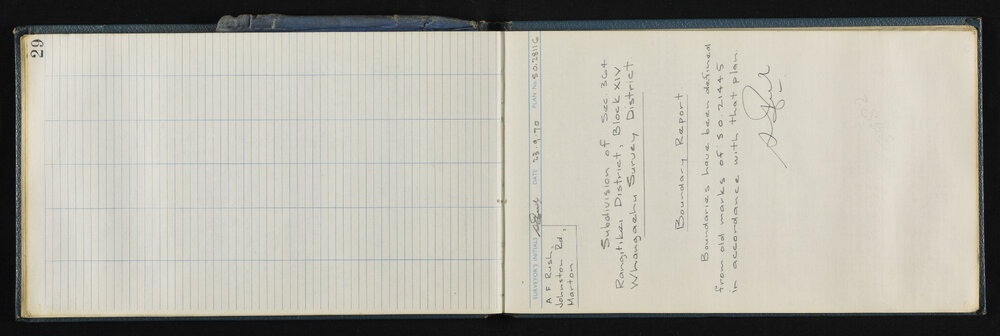 29
SURVEYOR'S INITIALS DATE 23.9.70 PLAN No. S.O. 28116
A F Rush,
Johnston Rd,
Marton
Subdivision of Sec 364
Rangitikei District, Block XIV
Whangaehu Survey District
Boundary Report
Boundaries have been defined
from old marks of S O 21445
in accordance with that plan.